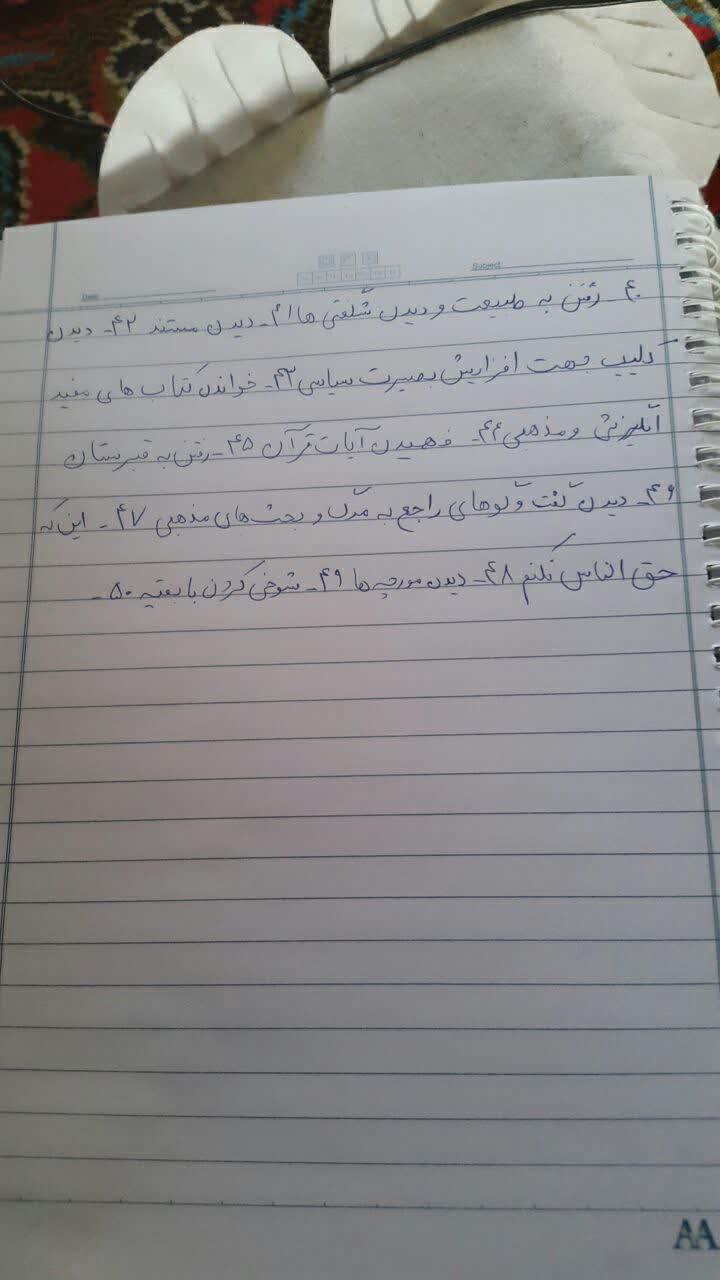 Date: Subject:
۴۰- رفتن به طبیعت و دیدن شگفتی ها ۴۱- دیدن مستند ۴۲- دیدن
کلیپ جهت افزایش بصیرت سیاسی ۴۳- خواندن کتاب های مفید
انگیزشی و مذهبی ۴۴- فهمیدن آیات قرآن ۴۵- رفتن به قبرستان
۴۶- دیدن گفت و گوهای راجع به مرگ و بحث های مذهبی ۴۷- این که
حق الناس نکنم ۴۸- دیدن مورچه ها ۴۹- شوخی کردن با بقیه ۵۰-
AA